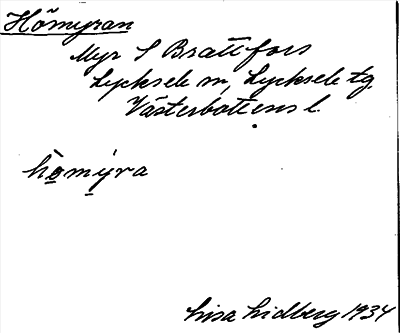 Hömyran
Myr S Brattfors
Lycksele sn, Lycksele tg.
Västerbottens l.
hòmýra
Lisa Lidberg 1934